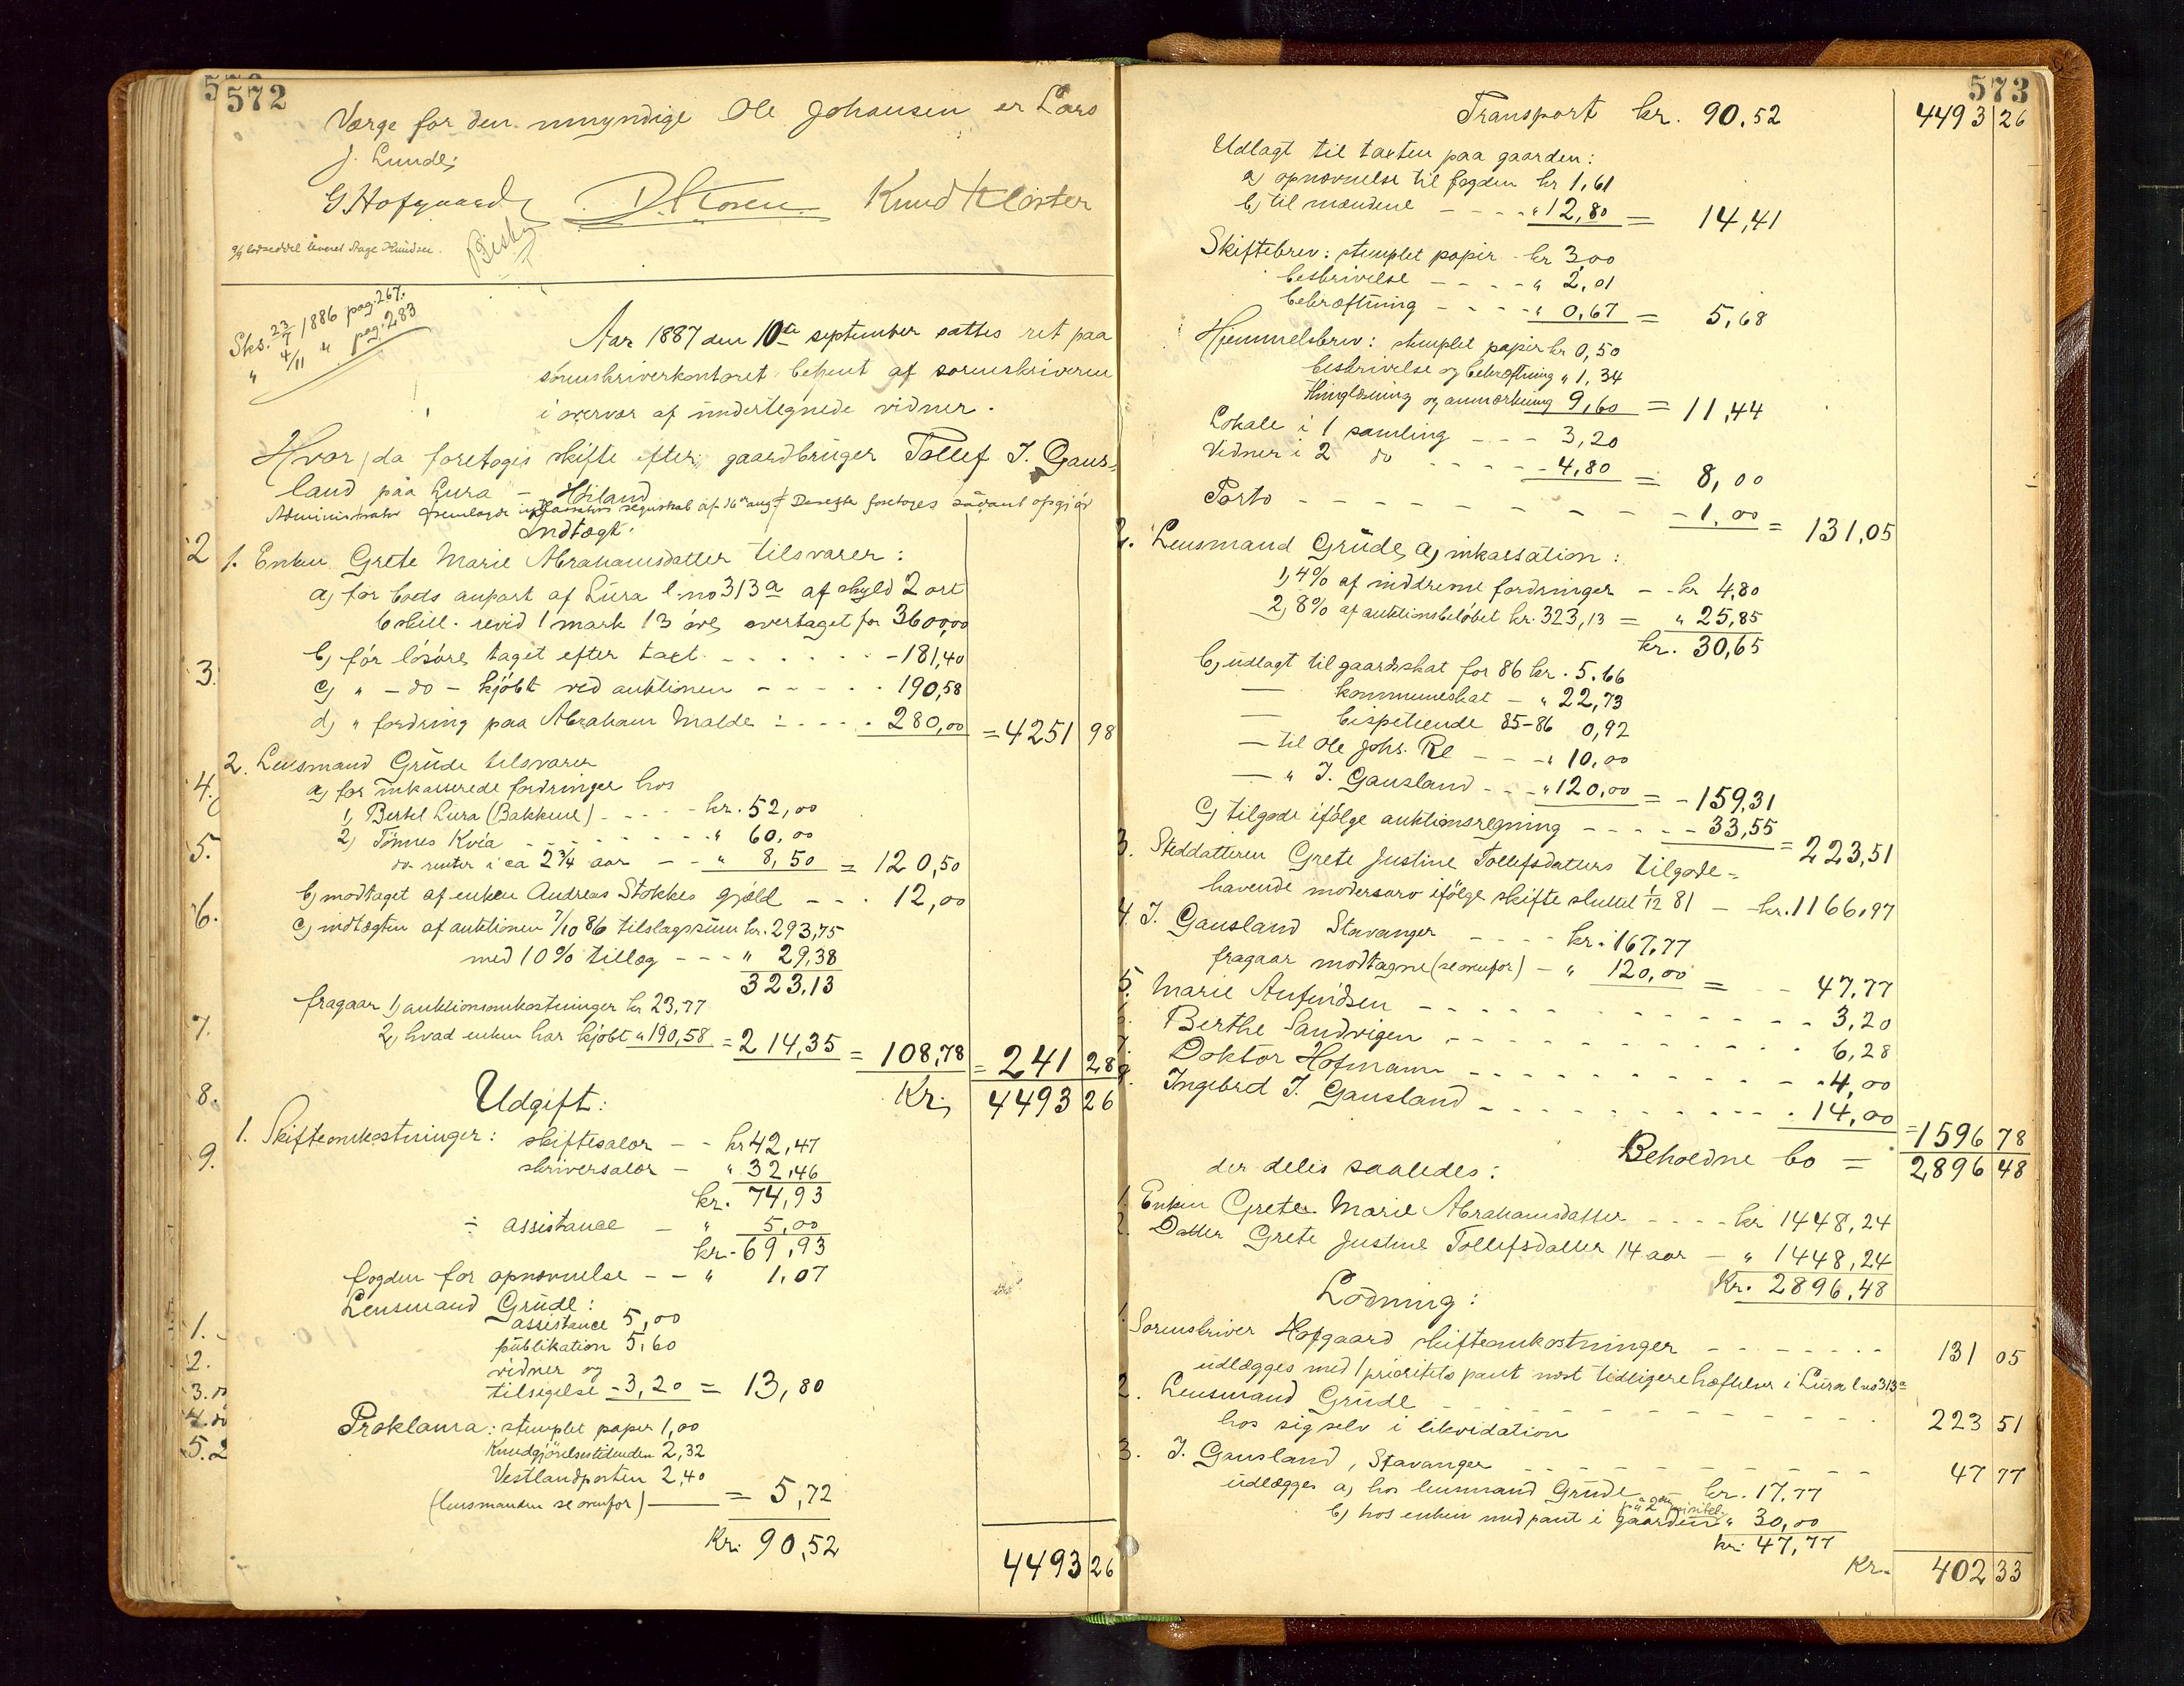 572
Værge for den umyndige Ole Johansen er Lars
J. Lunde;
G Hofgaard Knud Kloster
Sks. 23/7 1886 pag. 267.
" 4/11 " pag. 283
Aar 1887 den 10de september sattes ret paa
sorenskriverkontoret betjent af sorenskriveren
i overvær af undertegnede vidner.
Hvor da foretoges skifte efter gaardbruger Tollef T. Gaus-
land paa Lura – Høiland
Administrator fremlagde regnskab af 16de aug. Derefter foretoges sådant opgjør
Indtægt:
1. Enken Grete Marie Abrahamsdatter tilsvarer:
a) for boets anpart af Lura l.no 313a af skyld 2 ort
6 skill. revid 1 mark 13 øre, overtaget for 3600,00
b) for løsøre, taget efter taxt - - - - - 181,40
c) " – do – kjøbt ved auktionen - - - - 190,58
d) " fordring paa Abraham Malde - - - - 280,00 = 4251 98
2. Lensmand Grude tilsvarer
a) for inkasserede fordringer hos
1) Bertel Lura (Bakkene) - - - - kr. 52,00
2) Tønnes Kvia - - - - - " 60,00
do renter i ca 2 3/4 aar - - " 8,50 = 120,50
b) modtaget af enken Andreas Stokkes gjæld - - - 12,00
c) indtægten af auktionen 7/10 86 tilslagssum kr. 293,75
med 10% tillæg - - - " 29,38
323,13
fragaar 1) auktionsomkostninger kr 23,77
2) hvad enken har kjøbt " 190,58 = 214,35 = 108,78 = 241 28
Kr. 4493 26
Udgift:
1. Skifteomkostninger: skiftesalær - - kr 42,47
skriversalær - " 32,46
kr. 74,93
÷ assistance - " 5,00
kr. 69,93
fogden for opnævnelse - - " 1,07
Lensmand Grude:
assistance 5,00
publikation 5,60
vidner og
tilsigelse - 3,20 = 13,80
Proklama: stemplet papir 1,00
Kundgjørelsestidenden 2,32
Vestlandposten 2,40
(lensmanden se ovenfor) —— = 5,72
Kr. 90,52
4493 26
573
Transport kr. 90.52 4493 26
Udlagt til taxten paa gaarden:
a) opnævnelse til fogden kr 1,61
b) til mændene - - - - " 12,80 = 14,41
Skiftebrev: stemplet papir - kr 3,00
beskrivelse - - - - " 2,01
bekræftning - - - - " 0,67 = 5,68
Hjemmelsbrev: stemplet papir kr 0,50
beskrivelse og bekræftning " 1,34
thinglæsning og anmærkning 9,60 = 11,44
Lokale i 1 samling - - - 3,20
Vidner i 2 do - - - - - 4,80 = 8,00
Porto - - - - - - - - 1,00 = 131,05
2. Lensmand Grude, a) inkassation:
1) 4% af inddrevne fordringer - - kr 4,80
2) 8% af auktionsbeløbet kr. 323,13 = " 25,85
kr. 30,65
b) udlagt til gaardsskat for 86 kr. 5.66
— kommuneskat - " 22,73
— bispetiende 85–86 0,92
— til Ole Johs. Re - - - " 10,00
— " T. Gausland - - - " 120,00 = - 159,31
c) tilgode ifølge auktionsregning - - - - - 33,55 = 223,51
3. Steddatteren Grete Justine Tollefsdatters tilgode-
havende mødrearv ifølge skifte sluttet 1/12 81 - kr. 1166,97
4. T. Gausland Stavanger - - - - kr. 167,77
fragaar modtagne (se ovenfor) - " 120,00 = - - 47,77
5. Marie Anfindsen - - - - - - - - - 3,20
6. Berthe Sandvigen - - - - - - - - - 6,28
7. Doktor Hofmann - - - - - - - - - 4,00
8. Ingebret T. Gausland - - - - - - - 14,00 = 1596 78
Beholdne bo = 2896 48
der deles saaledes:
1. Enken Grete Marie Abrahamsdatter - - - - kr 1448,24
2. Datter Grete Justine Tollefsdatter 14 aar - " 1448,24
Kr. 2896,48
Lodning:
1. Sorenskriver Hofgaard skifteomkostninger - - - - - - - 131 05
udlægges med 1 prioritets pant næst tidligere heftelser i Lura l.no 313a
2. Lensmand Grude - - - - - - - - - 223 51
hos sig selv i likvidation
3. T. Gausland, Stavanger - - - - - - - - 47 77
udlægges a) hos lensmand Grude - kr. 17,77
b) hos enken med pant i gaarden " 30,00
kr. 47,77
Kr. 402 33